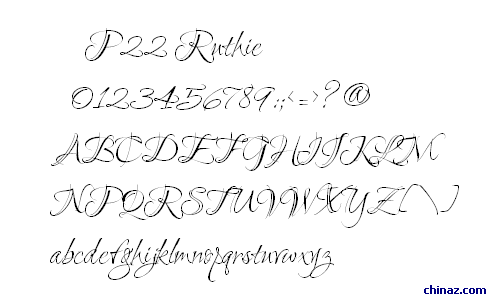 P22 Ruthie
0123456789:;<=>?@
ABCDEFGHIJKLM
NOPQRSTUVWXYZ[\]
abcdefghijklmnopqrstuvwxyz
chinaz.com